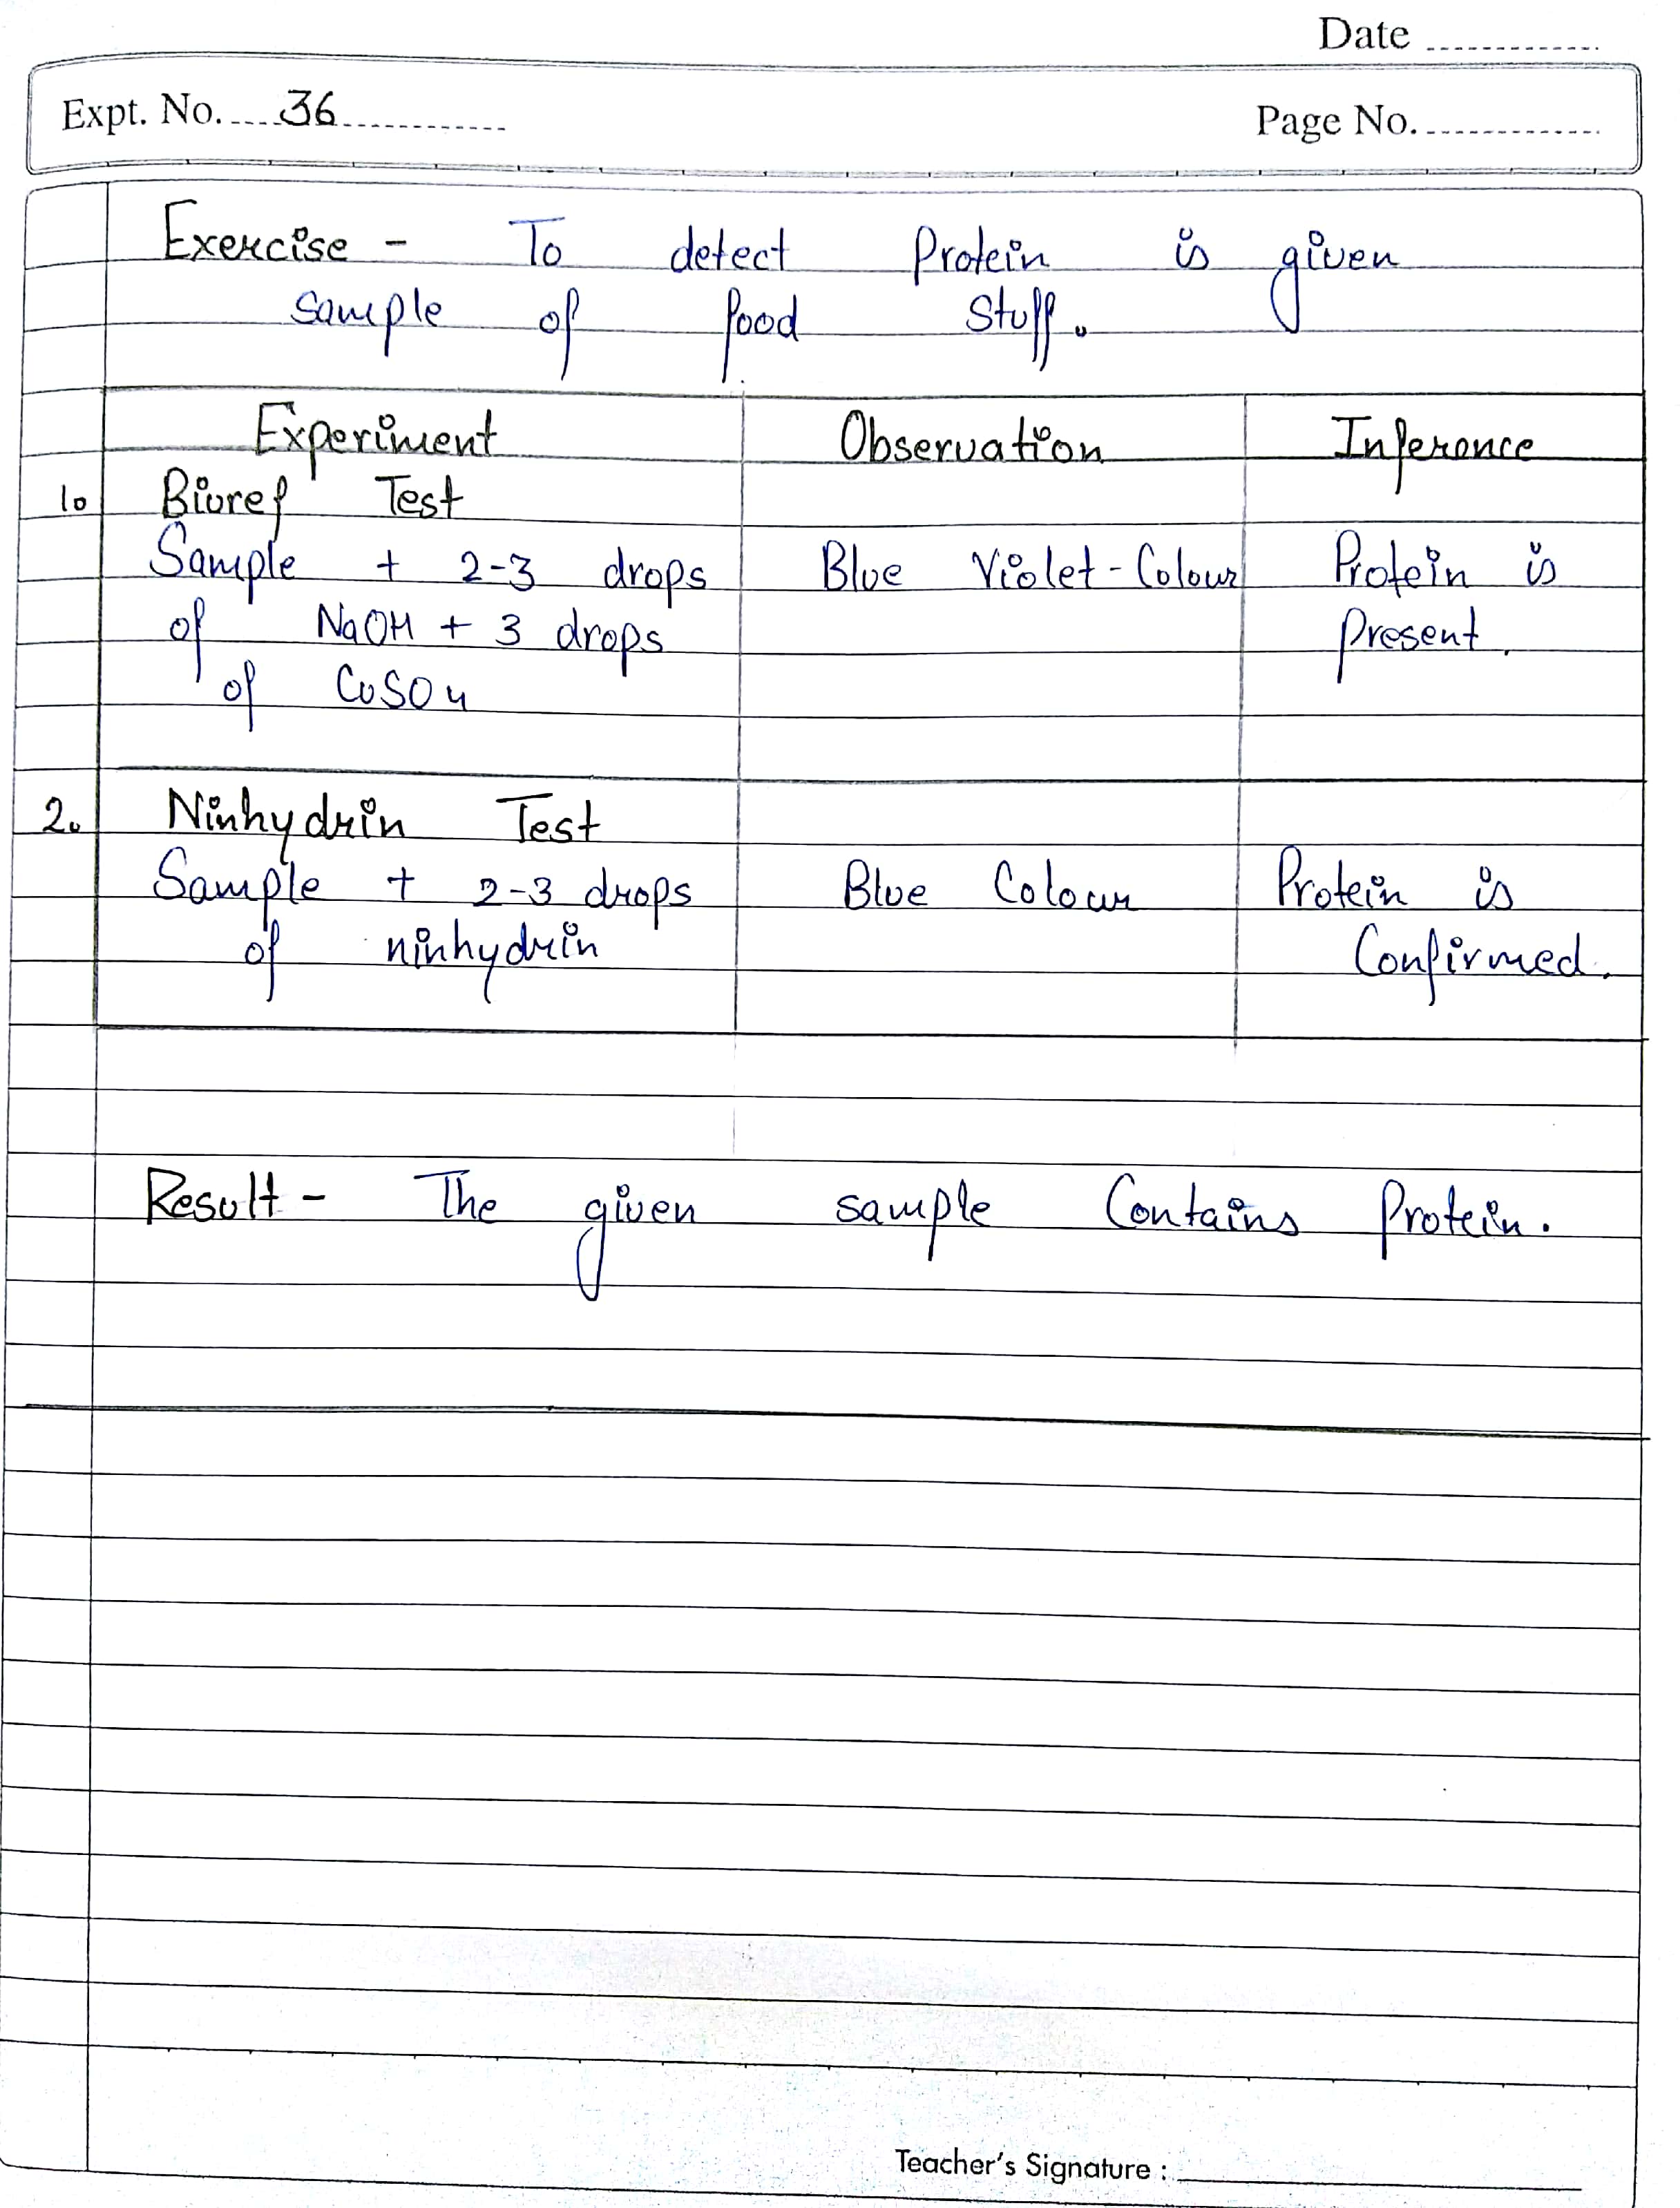 Date
Expt. No. 36
Page No.
Exercise - To detect Protein is given
sample of food stuff.
Experiment Observation Inference
1. Biuret Test
Sample + 2-3 drops Blue Violet-Colour Protein is
of NaOH + 3 drops Present.
of CuSO4
2. Ninhydrin Test
Sample + 2-3 drops Blue Colour Protein is
of ninhydrin Confirmed.
Result - The given sample Contains Protein.
Teacher's Signature :